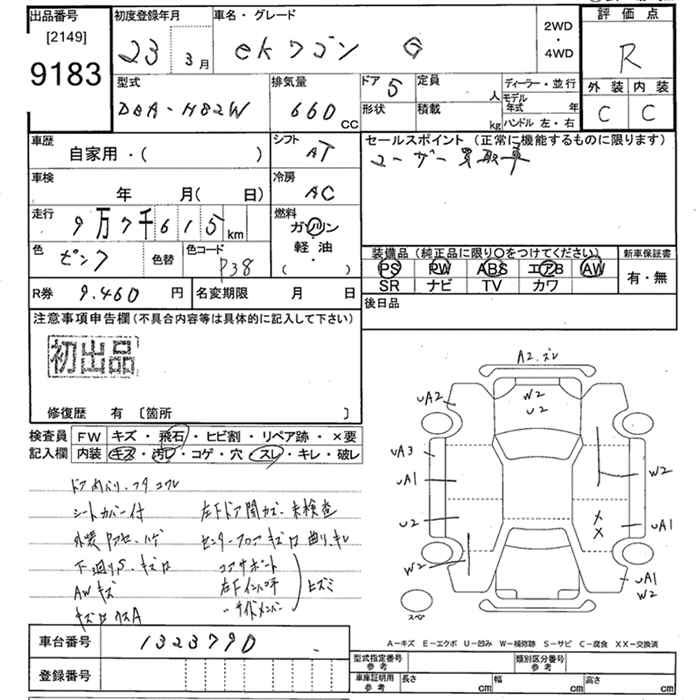 出品番号
[2149]
9183
初度登録年月
23 3月
車名・グレード
ekワゴン G
2WD
・
4WD
評価点
R
外装 内装
C C
型式
DBA-H82W
排気量
660 CC
ドア 5
形状
定員 人
積載 kg
ディーラー・並行
モデル年式 年
ハンドル 左・右
車歴
自家用・( )
シフト
AT
セールスポイント (正常に機能するものに限ります)
ユーザー買取車
車検
年 月( 日)
冷房
AC
走行
9万7千615 km
燃料
ガソリン
軽・油
( )
色
ピンク
色替
色コード
P38
装備品 (純正品に限り○をつけてください)
PS PW ABS エアB AW
SR ナビ TV カワ
新車保証書
有・無
R券 9.460 円
名変期限 月 日
後日品
注意事項申告欄 (不具合内容等は具体的に記入して下さい)
初出品
修復歴 有 〔箇所 〕
検査員
記入欄
FW キズ・飛石・ヒビ割・リペア跡・×要
内装 キズ・汚レ・コゲ・穴・スレ・キレ・破レ
シートカバー付
左下ドア開カズ・未検査
下廻りS・キズ
コアサポート
AWキズ
サイドメンバー
ヒズミ
A2.ズレ
W2
U2
UA2
UA3
UA1
U2
W2
W2
UA1
X
X
UA1
W2
スペア
A-キズ E-エクボ U-凹み W-補修跡 S-サビ C-腐食 XX-交換済
車台番号
1323790
登録番号
型式指定番号
参考
類別区分番号
参考
車庫証明用
参考
長さ cm
幅 cm
高さ cm